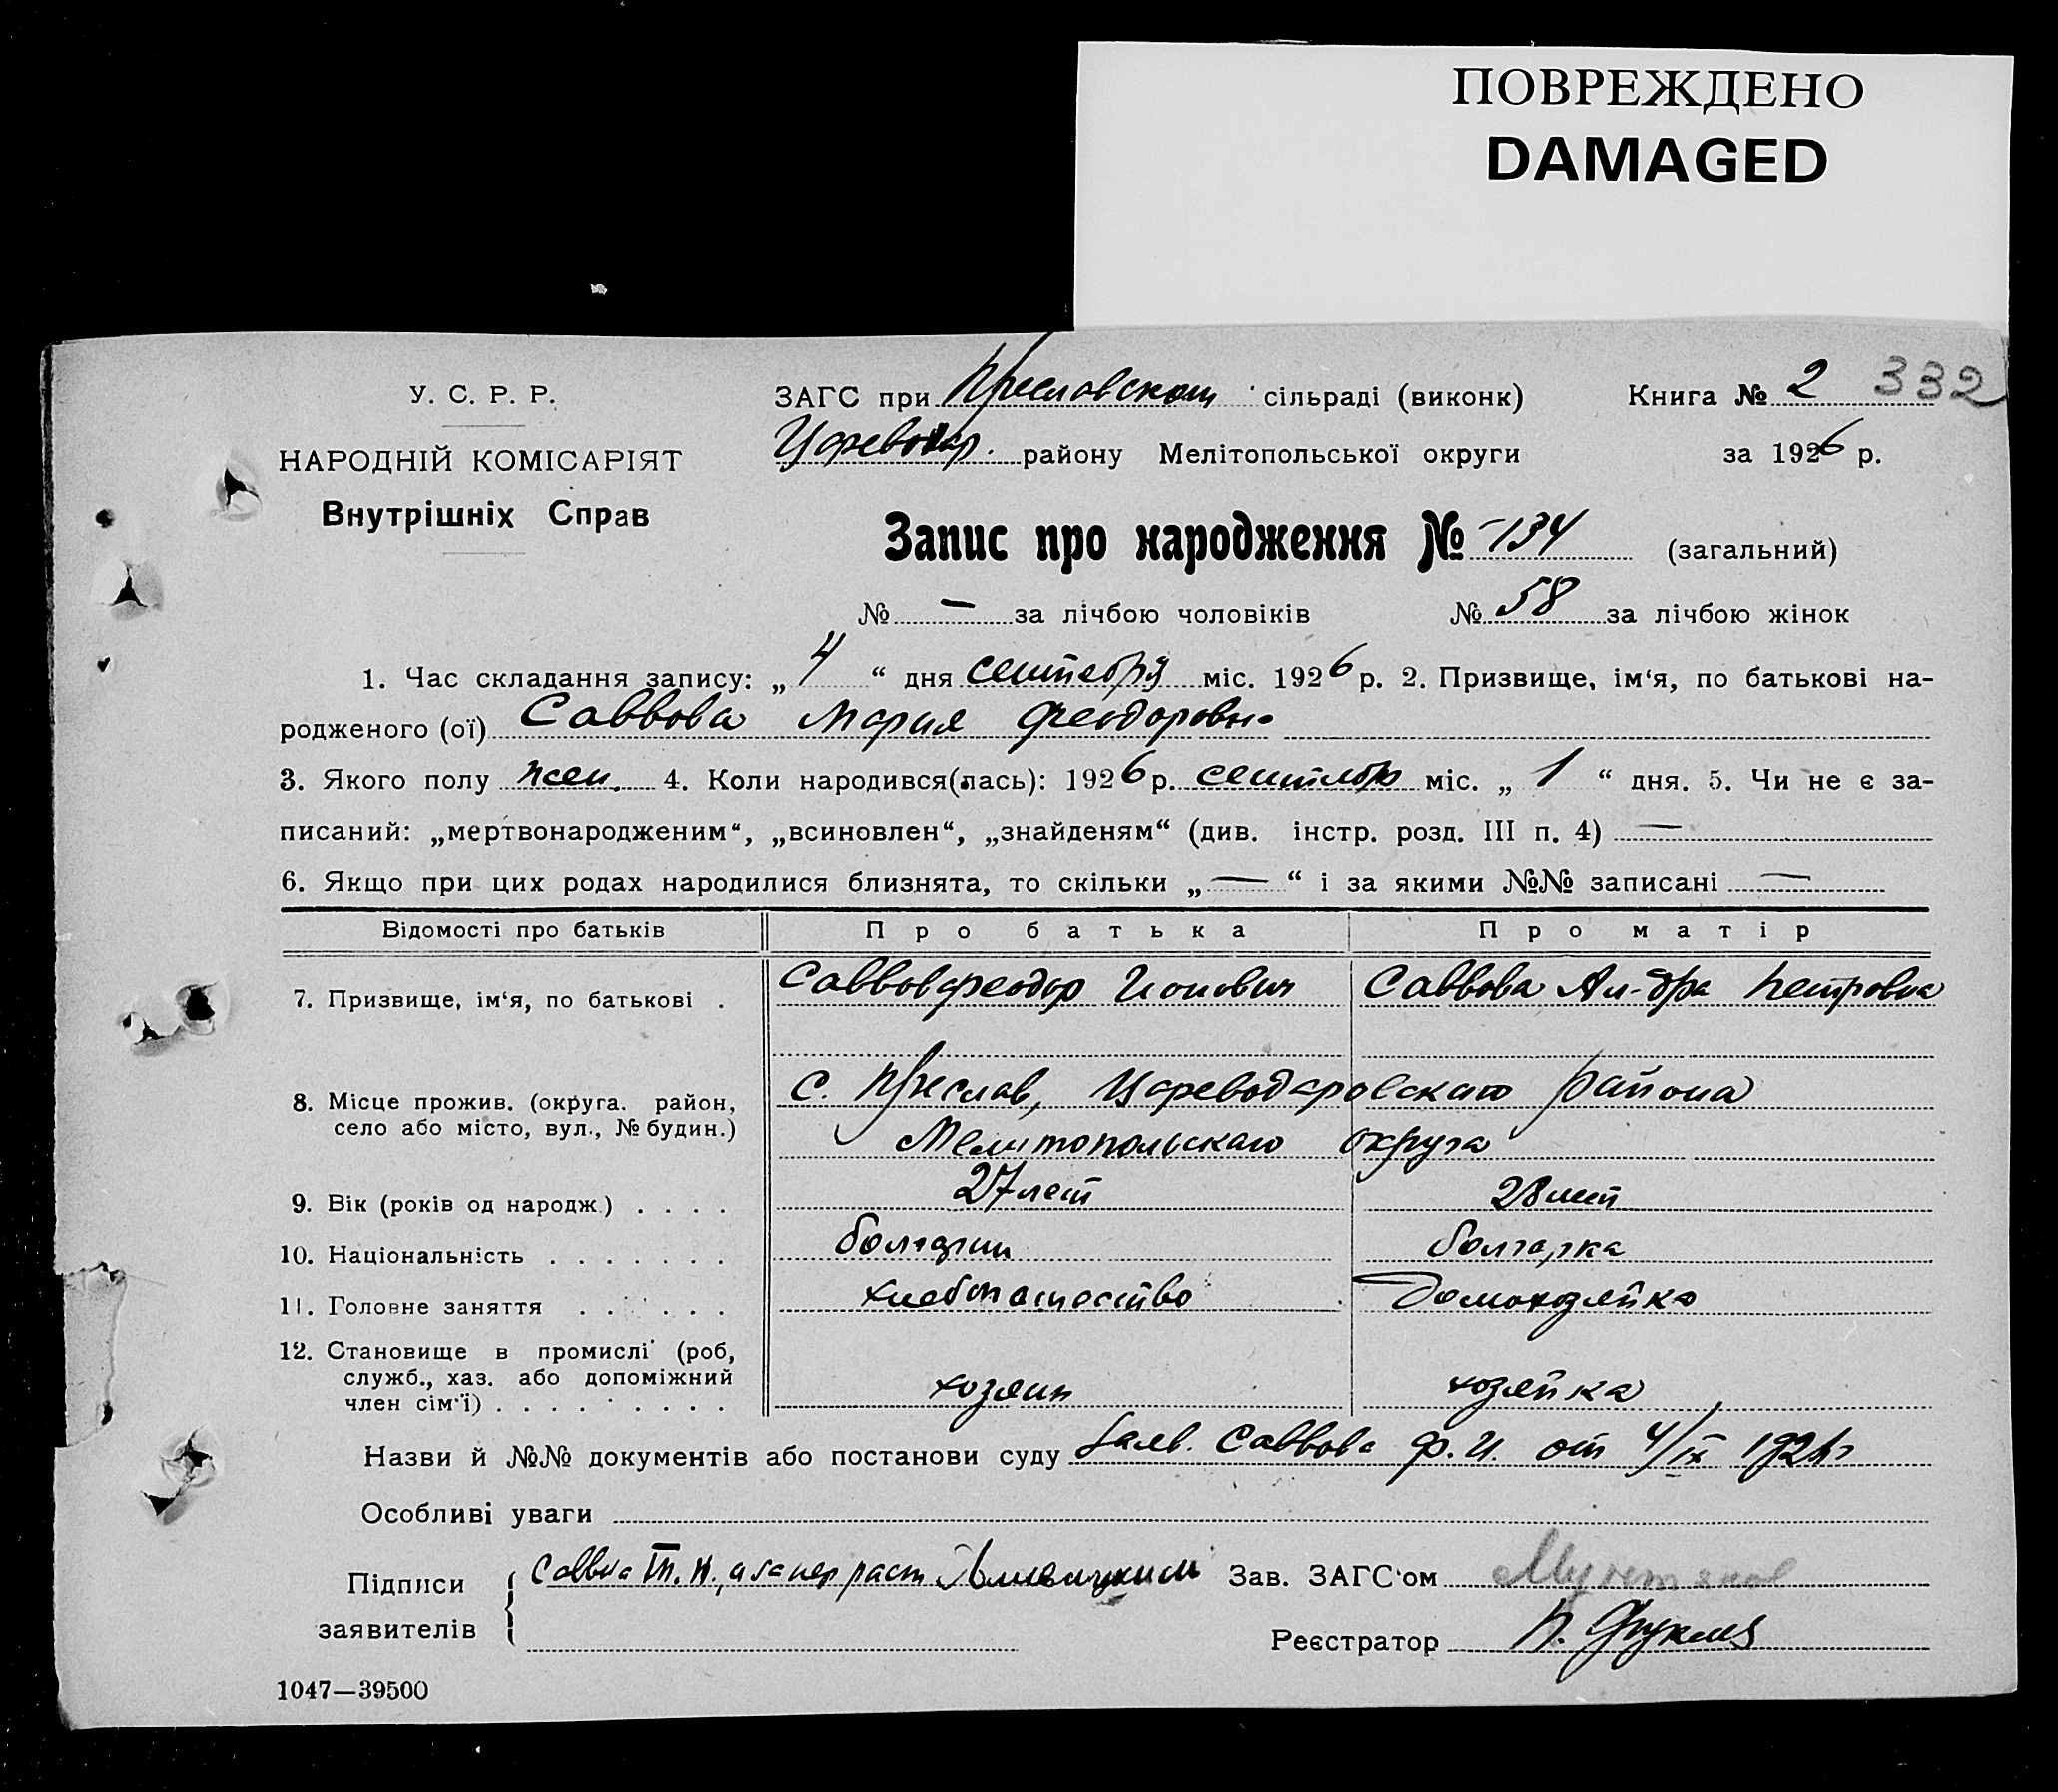 ПОВРЕЖДЕНО
DAMAGED
У. С. Р. Р.
НАРОДНІЙ КОМІСАРІЯТ
Внутрішніх Справ
ЗАГС при Преславском сільраді (виконк)
Книга № 2 332
района Мелітопольської округи
за 1926 р.
Запис про народження № 134 (загальний)
№ — за лічбою чоловіків № 58 за лічбою жінок
1. Час складання запису: „4“ дня сентября міс. 1926 р. 2. Призвище, ім‘я, по батькові на-
родженого (ої) Саввова Мария Феодоровн
3. Якого полу жен. 4. Коли народився(лась): 1926 р. сентябр міс. „1“ дня. 5. Чи не є за-
писаний: „мертвонародженим“, „всиновлен“, „знайденям“ (див. інстр. розд. III п. 4) —
6. Якщо при цих родах народилися близнята, то скільки „—“ і за якими №№ записані —
Відомості про батьків Про батька Про матір
7. Призвище, ім‘я, по батькові . Саввов Феодор Ионович Саввова Ал-дра Петровна
8. Місце прожив. (округа. район, село або місто, вул., № будин.) с. Преслав, Цареводаровскаго района
Мелитопольскаго округа
9. Вік (років од народж.) . . . . 27 лет 28 лет
10. Національність . . . . . . . болгарин болгарка
11. Головне заняття . . . . . . хлебопашество домохозяйка
12. Становище в промислі (роб,
служб., хаз. або допоміжний
член сім‘ї) . . . . . . . . . хозяин хозяйка
Назви й №№ документів або постанови суду Заяв. Саввова Ф. И. от 4/IX 1926 г
Особливі уваги
Підписи
заявителів
Зав. ЗАГС‘ом
Реєстратор
1047—39500